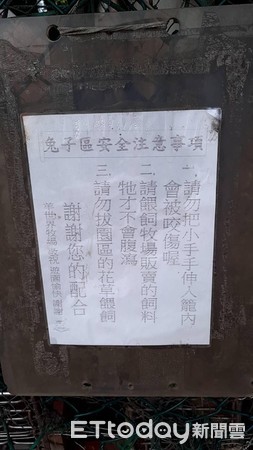 兔子區安全注意事項
一、請勿把小手手伸入籠內
會被咬傷喔
二、請餵飼牧場販賣的飼料
牠才不會腹瀉
三、請勿拔園區的花草餵飼
謝謝您的配合
ETtoday新聞雲